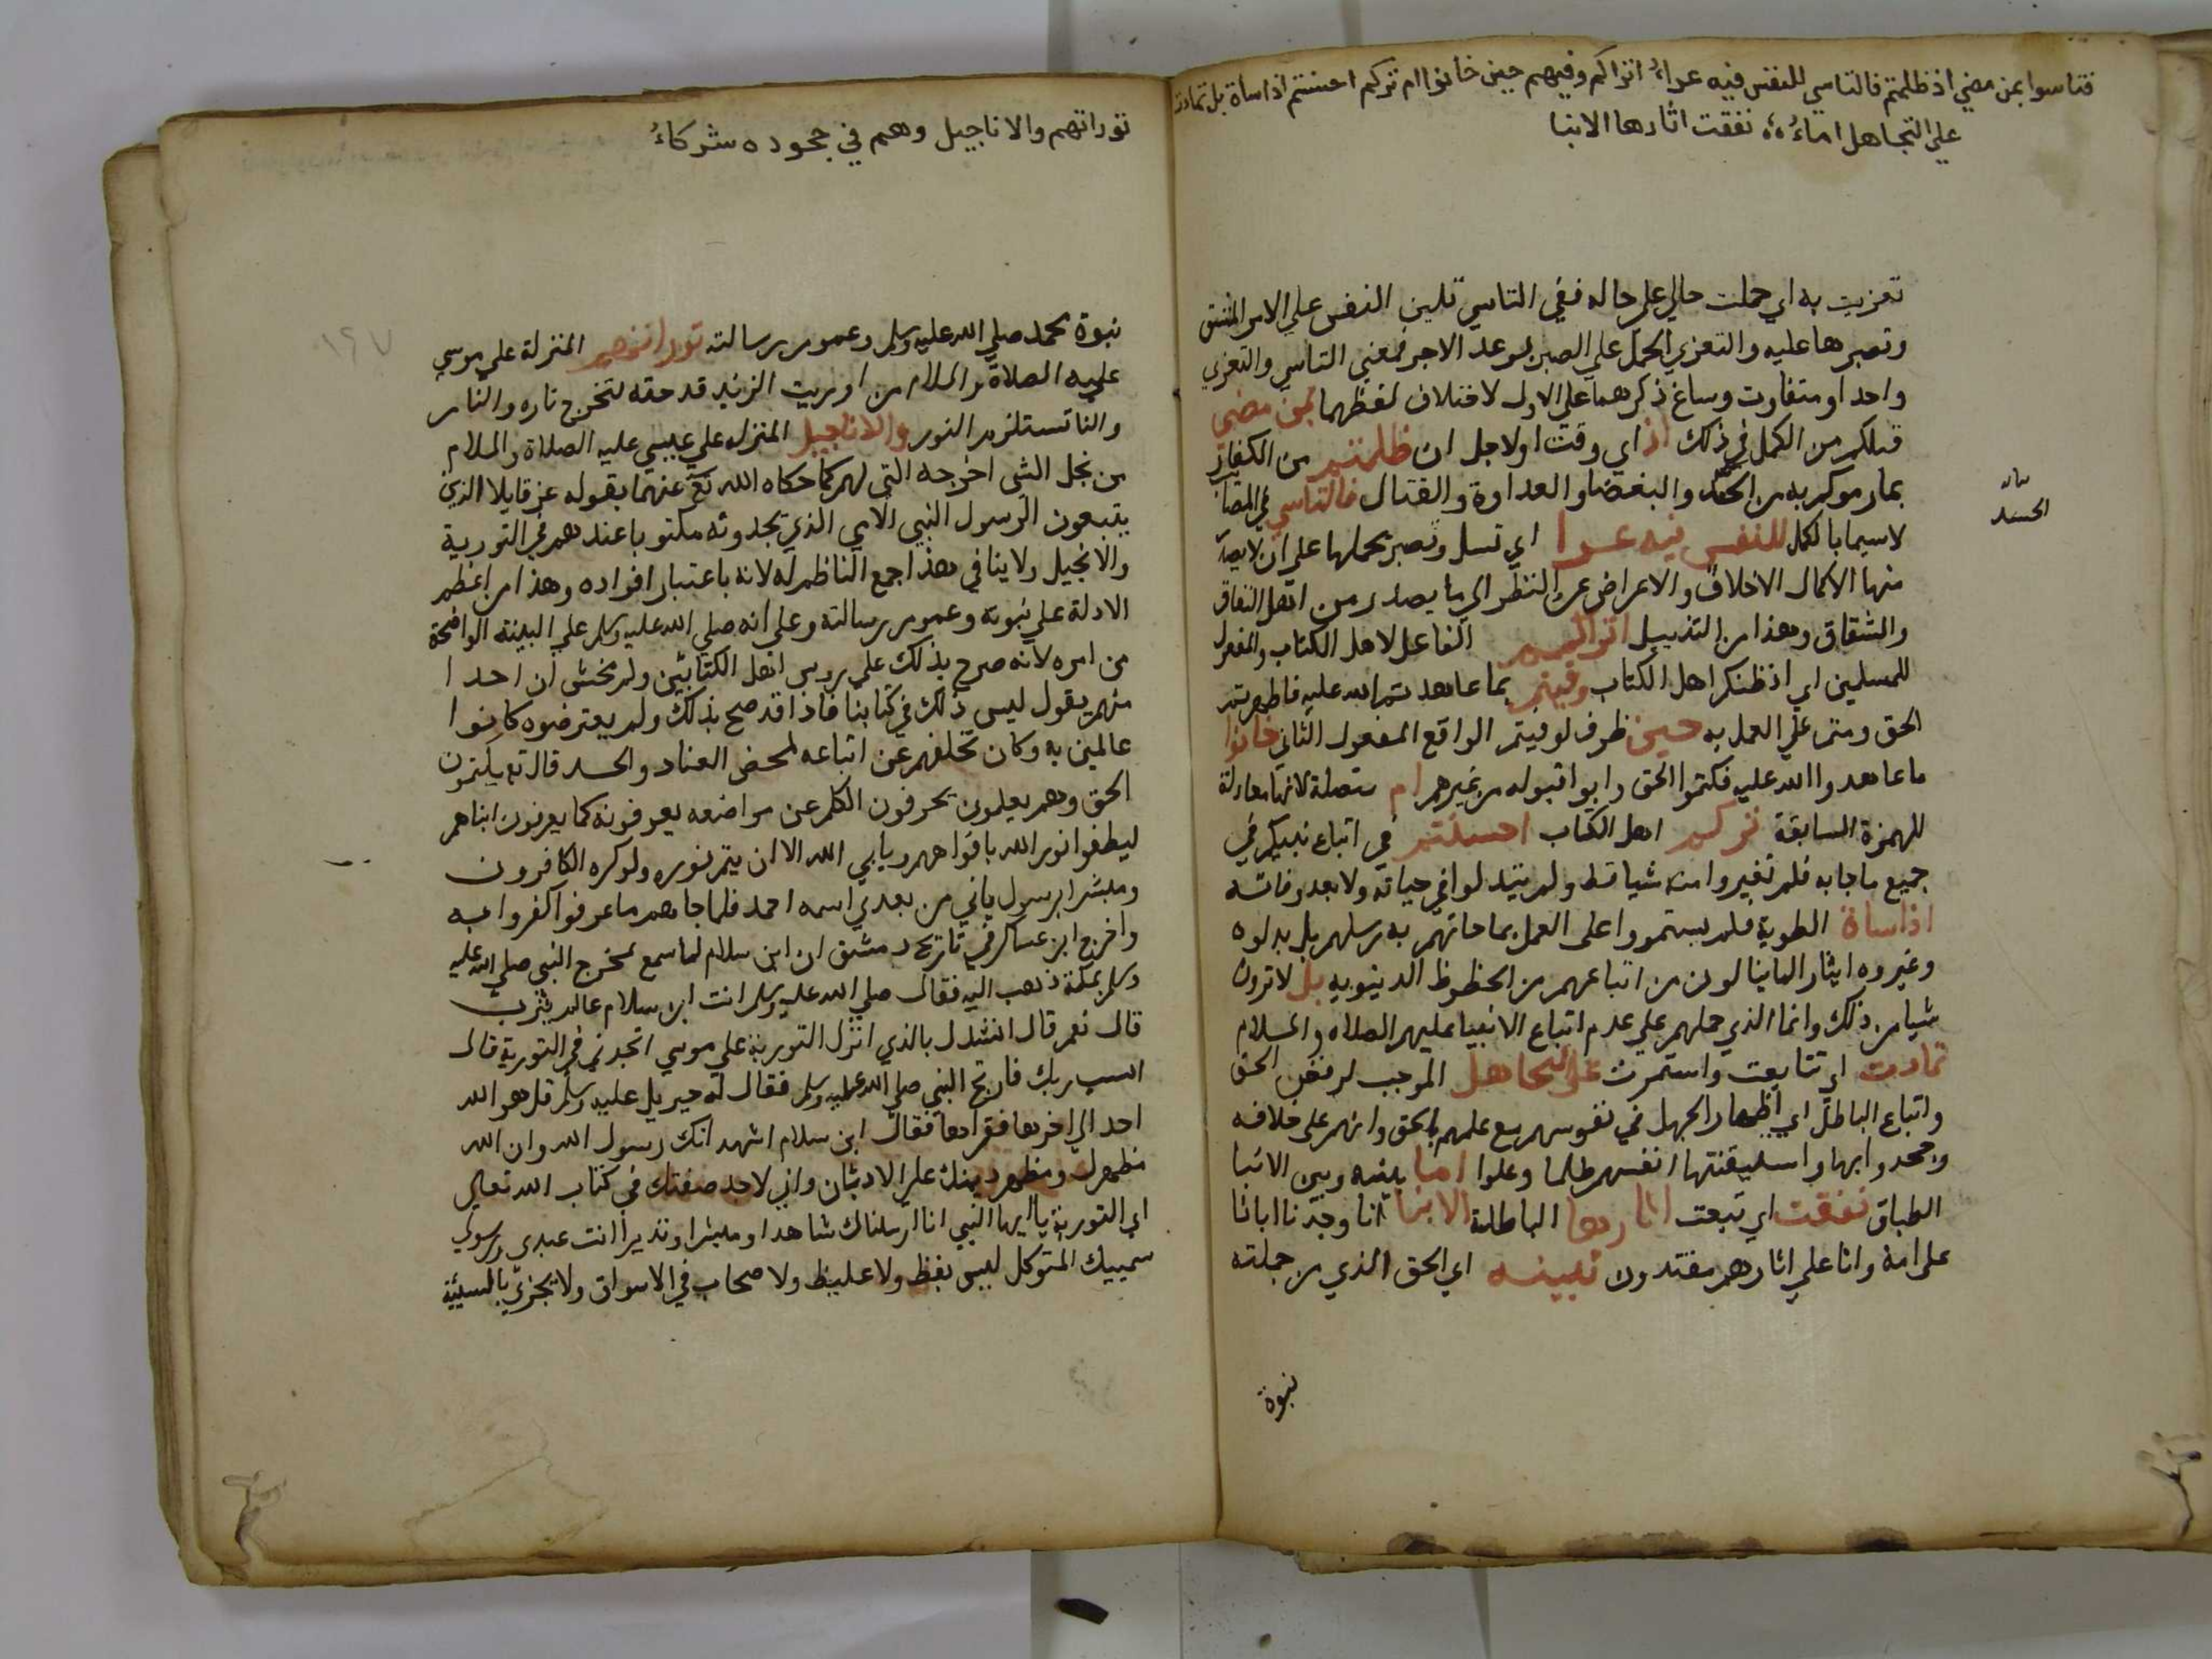 فتاسوا بمن مضي اذ ظلمتم فالتاسي للنفس فيه عزاءُ اتراكم وفيهم حين خانوا ام تركم احسنتم اذ اساة بل تمادت
علي التجاهل اماءُ ؞ نفقت اثارها الابنا
تعزيت به اي حملت حالي علي حاله ففي التاسي تلين النفس علي الامر المشق
وتصبرها عليه والتعزي الحمل علي الصبر بوعد الاجر فمعني التاسي والتعزي
واحد او متفاوت وساغ ذكرهما علي الاول لاختلاف لفظهما بمن مضي
قبلكم من الكمل في ذلك اذ اي وقت او لاجل ان ظلمتم من الكفار
بما رموكم به من الحسد والبغضا والعداوة والقتال فالتاسي في المصا
لاسيما بالكمل للنفس فيه عزا اي تسل وتصبر يحملها علي ان لا يصدر
منها الا كمال الاخلاق والاعراض عن النظر الي ما يصدر من اهل النفاق
والشقاق وهذا من التذييل اتراكم الفاعل لاهل الكتاب والمفعول
للمسلمين اي اذ ظنكم اهل الكتاب وفيتم بما عاهدتم الله عليه فاظهرتم
الحق ومتم علي العمل به حين ظرف لوفيتم الواقع المفعول الثاني خانوا
ما عاهدوا الله عليه فكتموا الحق وابوا قبوله من غيرهم ام متصلة لانها معادلة
للهمزة السابقة تركم اهل الكتاب احسنتم في اتباع نبيكم في
جميع ما جا به فلم تغيروا منه شيا قط ولم يتبدلوا في حياته ولا بعد وفاته
اذ اساة الطوية فلم يستمروا علي العمل بما جاتهم به رسلهم بل بدلوه
وغيروه ايثارا لما ينالون من اتباعهم من الحظوظ الدينويه بل لا ترون
شيا من ذلك وانما الذي حملهم علي عدم اتباع الانبيا عليهم الصلاه والسلام
تمادت اي تتابعت واستمرت علي التجاهل الموجب لرفض الحق
واتباع الباطل اي اظهار الجهل في نفوسهم مع علمهم بالحق وانهم علي خلافه
وجحدوا بها واستيقنتها انفسهم ظلما وعلوا ابا بينه وبين الابنا
الطباق نفقت اي تبعت اثارها الباطلة الابنا انا وجدنا اباءنا
علي امة وانا علي اثارهم مقتدون تبينه اي الحق الذي من جملته
بيان
الحسد
نبوة
توراتهم والاناجيل وهم في جحوده شركاءُ
١٩٧
نبوة محمد صلي الله عليه وسلم وعموم رسالته توراتهم المنزلة علي موسي
عليه الصلاة والسلام من اوريت الزند قدحته لتخرج ناره والنار
والنا تستلزم النور والاناجيل المنزله علي عيسي عليه الصلاة والسلام
من نجل الشي اخرجه التي لهم كما حكاه الله تع عنهما بقوله عز قايلا الذين
يتبعون الرسول النبي الامي الذي يجدونه مكتوبا عندهم في التورية
والانجيل ولا ينافي هذا جمع الناظم له لانه باعتبار افراده وهذا من اعظم
الادلة علي نبوته وعموم رسالته وعلي انه صلي الله عليه وسلم علي البينة الواضحة
من امره لانه صرح بذلك علي روس اهل الكتابين ولم يخش ان احدا
منهم يقول ليس ذلك في كتابنا فاذا قد صح بذلك ولم يعترضوه كانوا
عالمين به وكان تخلفهم عن اتباعه لمحض العناد والحسد قال تع يكتمون
الحق وهم يعلمون يحرفون الكلم عن مواضعه يعرفونه كما يعرفون ابناهم
ليطفوا نور الله بافواههم ويابي الله الا ان يتم نوره ولو كره الكافرون
ومبشرا برسول ياتي من بعدي اسمه احمد فلما جاهم ما عرفوا كفروا به
واخرج ابن عساكر في تاريخ دمشق ان ابن سلام لما سمع بمخرج النبي صلي الله عليه
وسلم بمكة ذهب اليه فقال صلي الله عليه وسلم انت ابن سلام عالم يثرب
قال نعم قال انشدك بالذي انزل التورية علي موسي اتجدني في التورية قال
انسب ربك فارتج النبي صلي الله عليه وسلم فقال له جبريل عليه وسلم قل هو الله
احد الي اخرها فقراها فقال ابن سلام اشهد انك رسول الله وان الله
مظهرك ومظهر دينك علي الاديان واني لاجد صفتك في كتاب الله تعالي
اي التورية يا ايها النبي انا ارسلناك شاهدا ومبشرا ونذيرا انت عبدي ورسولي
سميتك المتوكل ليس بفظ ولا غليظ ولا صخاب في الاسواق ولا يجزي بالسيئة